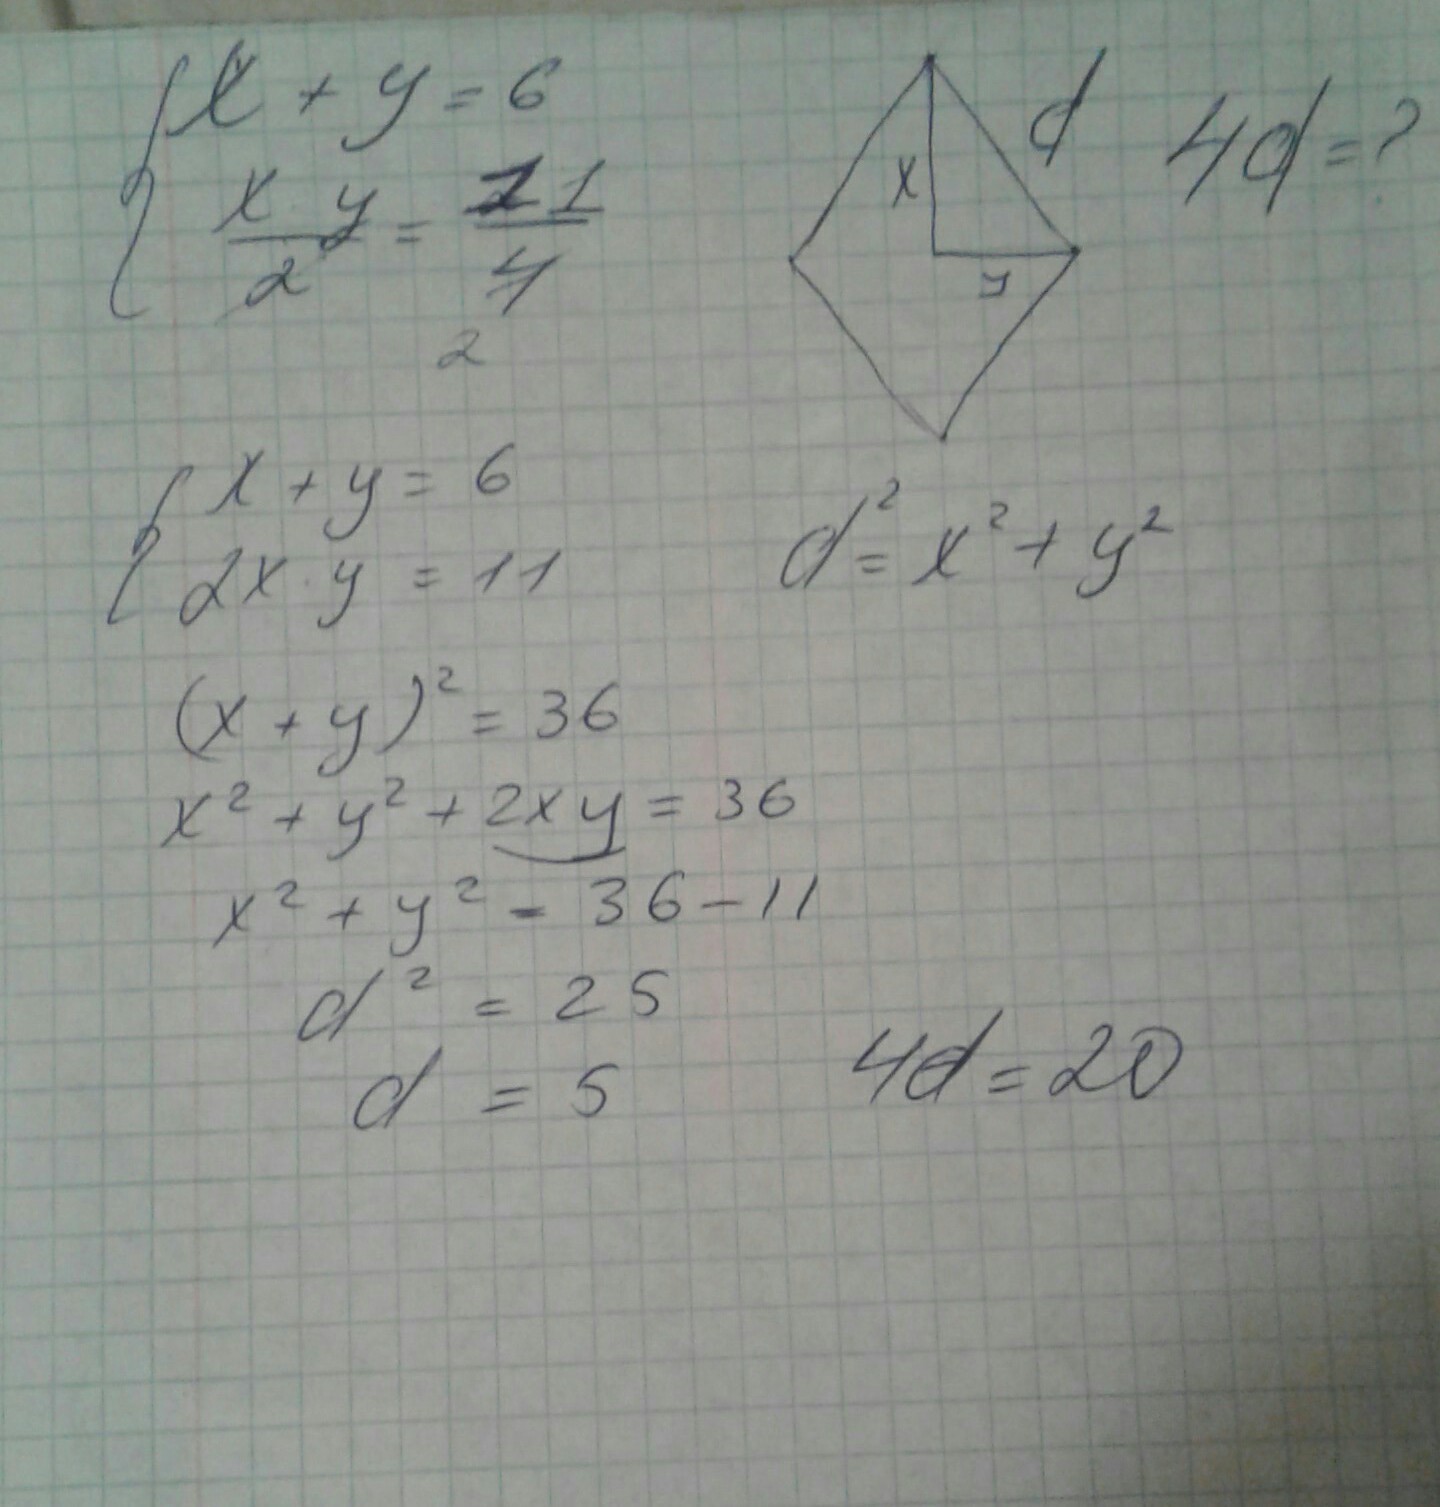 x + y = 6
x · y / 2 = 11 / 4
2
x
y
d
4d = ?
x + y = 6
2x · y = 11
d² = x² + y²
(x + y)² = 36
x² + y² + 2xy = 36
x² + y² = 36 - 11
d² = 25
d = 5
4d = 20